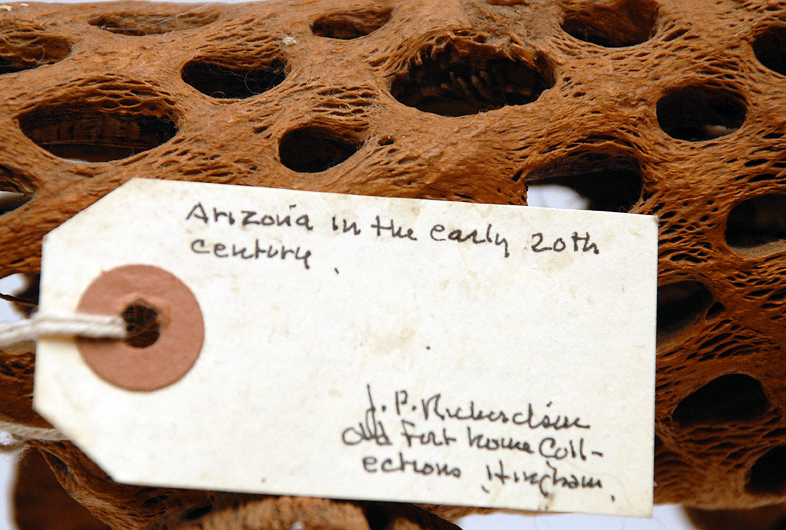 Arizona in the early 20th
century.
J. P. Richardson
Old Fort House Coll-
ections, Hingham.